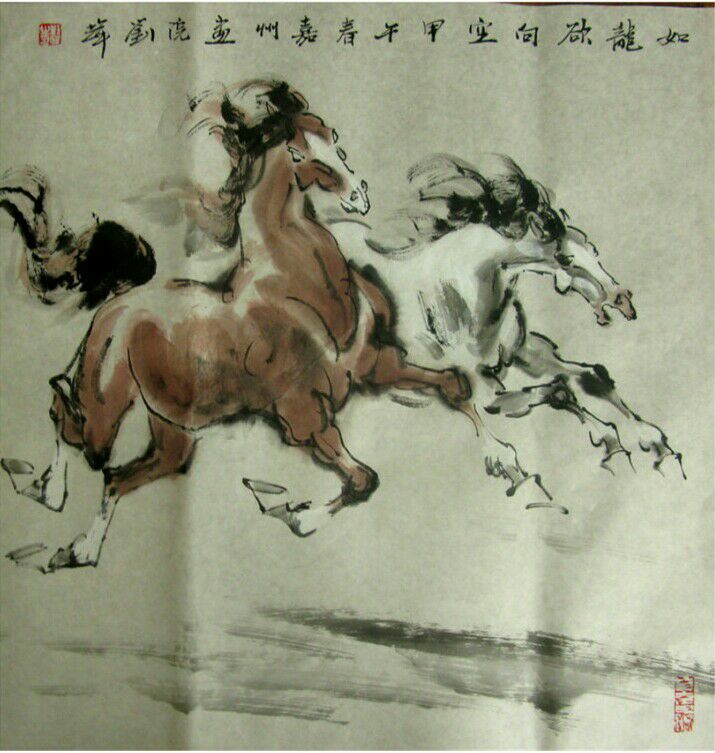 如龍欲向空甲午春嘉州畫院劉萍